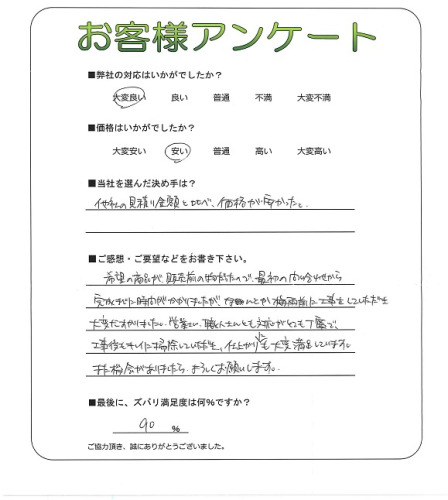 お客様アンケート
■弊社の対応はいかがでしたか?
大変良い 良い 普通 不満 大変不満
■価格はいかがでしたか?
大変安い 安い 普通 高い 大変高い
■当社を選んだ決め手は?
他社の見積り金額と比べ、価格が安かった。
■ご感想・ご要望などをお書き下さい。
希望の商品が、販売前の物だったので、最初の問合せから
完成までに時間がかかりましたが、なんとか梅雨前に工事をしていただき
大変たすかりました。営業さん、職人さんとも対応がとても丁寧で、
工事後もきれいに掃除していただき、仕上がりにも大変満足しています。
また機会がありましたら、よろしくお願いします。
■最後に、ズバリ満足度は何%ですか?
90 %
ご協力頂き、誠にありがとうございました。